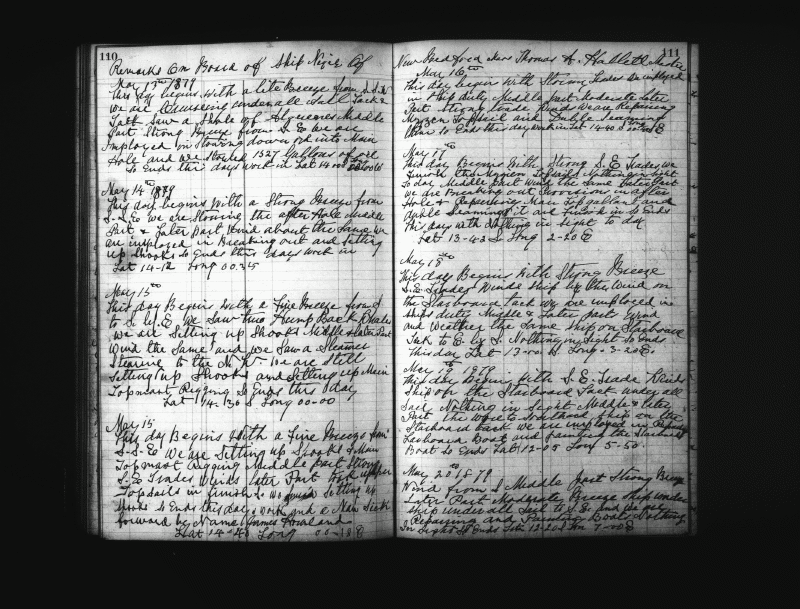 110
Remarks On Board of Ship Niger of
May 13th 1879
This day begins with a lite Breeze from S.S.E
we are Cruiseing under all Sail
Tack Saw a Shole of Middle
Part Strong Breeze from S E we are
Imployed in Stowing down oil into Main
Hole and we Stowed 1527 Gallons of oil
So Ends this days work in Lat 14-00
May 14th 1879
This day begins with a Strong Breeze from
S-S-E we are Stowing the after Hole Middle
Part & Later Part Wind about the Same we
are imployed in Breaking out and Setting
up Shooks So Ends this days work in
Lat 14-12 Long 00-35
May 15th
This day Begins with a fine Breeze from S
to S.E we Saw two Hump Back Whales
we are Setting up Shooks Middle & Later Part
Wind the Same and we Saw a Steamer
Stearing to the N.W. we are still
Setting up Shooks and Setting up Main
Topmast Rigging So Ends this day
Lat 14-30 S Long 00-00
May 15
This day Begins with a fine Breeze from
S-S-E we are Setting up Shooks & Main
Topmast Rigging Middle Part Strong
S.E Trades Winds later Part upper
Topsails in Setting up
Shooks So Ends this day work and a Man Sick
forward by Name James Howland
Lat 14-40 Long 00-18 E
111
New Bedford Mass Thomas A. Hallett Master
May 16th
This day begins with Strong Trades we imployed
in Ship duty Middle part Moderate later
Part Strong Trade Winds we are Repairing
Mizzen Topsail and Duble Seaming
So Ends this day work in Lat 14-40 S
May 17th
This day Begins with Strong S.E. Trades we
finish the Mizzen Topsail Nothing in Sight
To day Middle Part Wind the Same Later Part
we are Breaking out Provisions in after
Hole & Repairing Main Topgallant and
duble Seaming it and finish it So Ends
this days with Nothing in Sight to day
Lat 13-43 S Long 2-20 E
May 18th
This day Begins with Strong Breeze
S.E. Trades Winds Ship by the Wind on
the Starboard tack we are imployed in
Ships duty Middle & Later part Wind
and Weather the Same Ship on Starboard
Tack to E by S. Nothing in Sight So Ends
this day Lat 13-00 S. Long 3-20 E.
May 19 1879
This day Begins with S.E. Trade Winds
Ship on the Starboard Tack under all
Sail Nothing in Sight Middle & later
Part the Ship on the
Starboard tack we are imployed in Repairing
Larboard Boat and painting the Starboard
Boat So Ends Lat 12-05 Long 5-50.
May 20th 1879
Wind from S Middle part Strong Breeze
Later Part Moderate Breeze Ship under
Ship under all Sail to S.E. and we are
Repairing and Painting Boats Nothing
In Sight So Ends Lat 12-20 S Lon 7-00 E